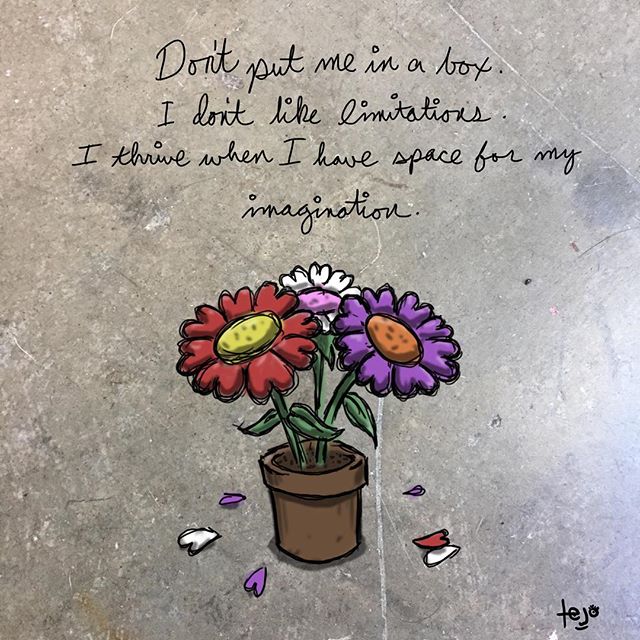 Don't put me in a box.
I don't like limitations.
I thrive when I have space for my
imagination.
tejo